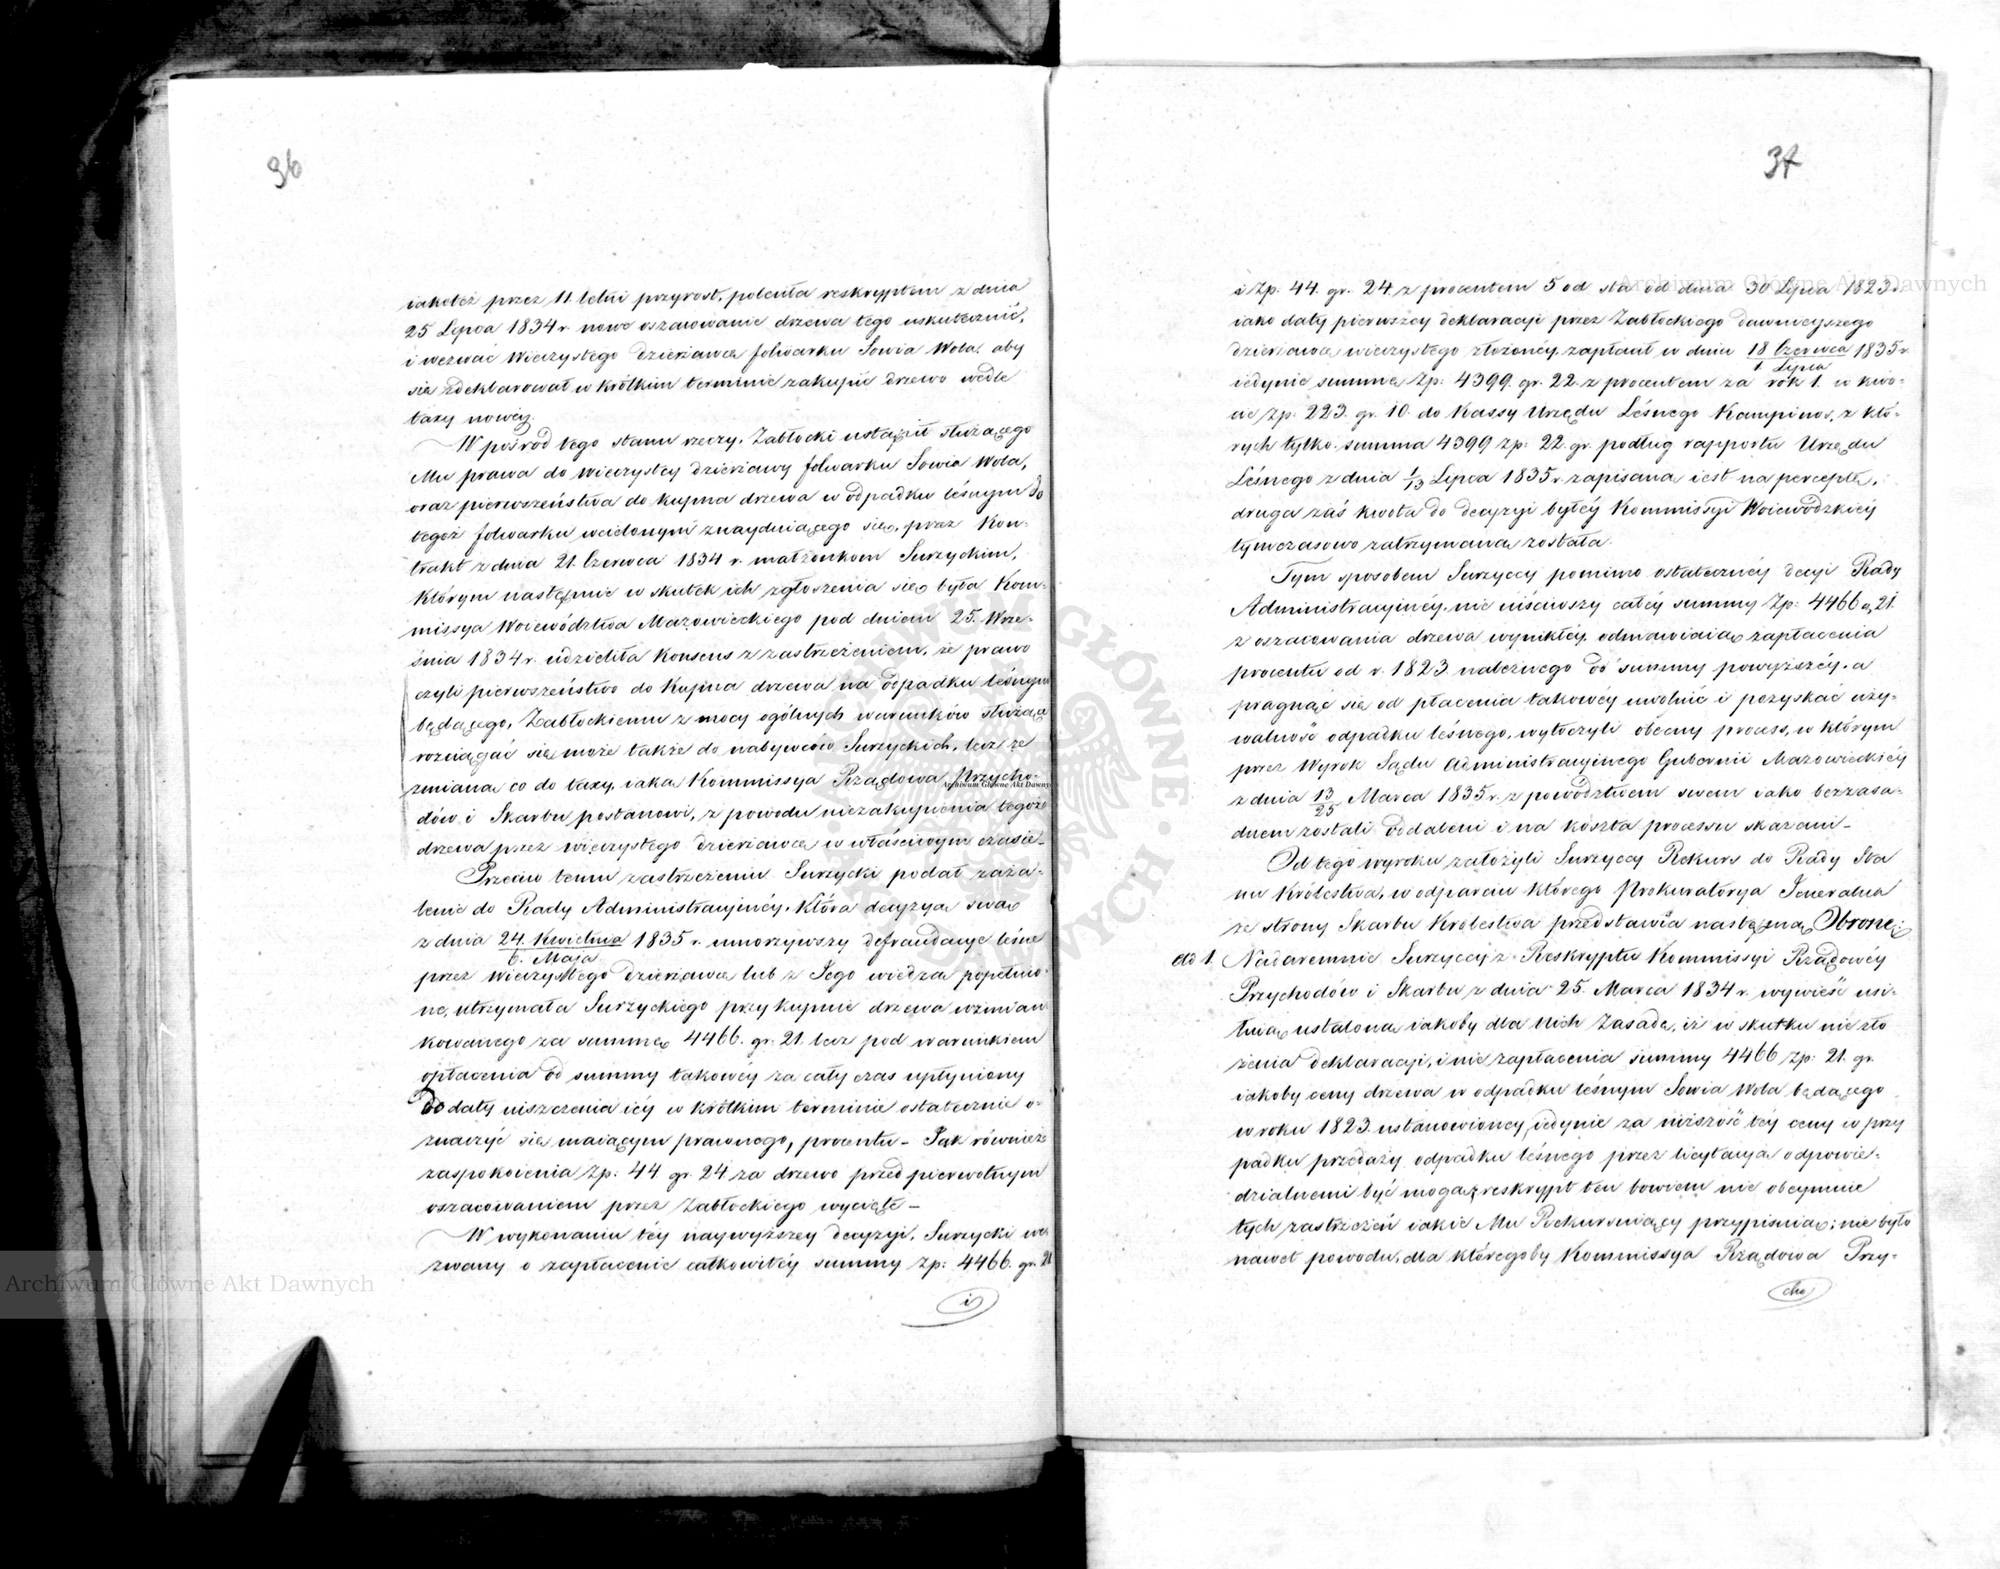 36
iakoteż przez 11. letni przyrost, poleciła reskryptem z dnia
25 Lipca 1834 r. nowe oszacowanie drzewa tego uskutecznić,
i wezwać Wieczystego Dzierżawcę folwarku Sowia Wola, aby
się zdeklarował w krótkim terminie zakupić drzewo wedle
taxy nowéy.
W pośród tego stanu rzeczy, Zabłocki ustąpił służącego
Mu prawa do wieczystey dzierżawy folwarku Sowia Wola,
oraz pierwszeństwa do kupna drzewa w odpadku leśnym do
tegoż folwarku wcielonym znayduiącego się, przez Kon-
trakt z dnia 21. Czerwca 1834 r. małżonkom Surzyckim,
którym następnie w skutek ich zgłoszenia się była Kom-
missya Woiewództwa Mazowieckiego pod dniem 25. Wrze-
śnia 1834 r. udzieliła Konsens z zastrzeżeniem, że prawo
czyli pierwszeństwo do kupna drzewa na odpadku leśnym
będącego, Zabłockiemu z mocy ogólnych warunków służące
rozciągać się może także do nabywców Surzyckich, lecz ze
zmianą co do taxy, iaką Kommissya Rządowa Przycho-
dów i Skarbu postanowi, z powodu niezakupienia tegoż
drzewa przez wieczystego dzierżawcę w właściwym czasie_
Przeciw temu zastrzeżeniu Surzycki podał zaża-
lenie do Rady Administracyinéy, która decyzyą swą
z dnia 24. Kwietnia 1835 r. umorzywszy defraudacye leśne
6. Maja
przez Wieczystego dzierżawcę lub z Jego wiedzą popełnio-
ne, utrzymała Surzyckiego przy kupnie drzewa wzmian-
kowanego za summę 4466. gr. 21. lecz pod warunkiem
opłacenia od summy takowéy za cały czas upłyniony
do daty uiszczenia iéy w krótkim terminie ostatecznie o-
znaczyć się maiącym prawnego, procentu – Jak również
zaspokoienia Zp: 44 gr. 24 za drzewo przed pierwotnym
oszacowaniem przez Zabłockiego wycięte –
W wykonaniu téy naywyższey decyzyi, Surzycki we-
zwany o zapłacenie całkowitéy summy Zp: 4466. gr. 21
i
37
i Zp. 44. gr. 24. z procentem 5 od sta od dnia 30 Lipca 1823 r.
iako daty pierwszey deklaracyi przez Zabłockiego dawnieyszego
dzierżawcę wieczystego złożonéy, zapłacił w dniu 18 Czerwca 1835 r.
1. Lipca
iedynie summę Zp: 4399. gr. 22. z procentem za rok 1. w kwo-
cie Zp: 223. gr. 10. do Kassy Urzędu Leśnego Kampinos, z któ-
rych tylko summa 4399 Zp: 22. gr. podług rapportu Urzędu
Leśnego z dnia 1/13 Lipca 1835 r. zapisana iest na perceptę,
druga zaś kwota do decyzyi byłéy Kommissyi Woiewódzkiéy
tymczasowo zatrzymana została.
Tym sposobem Surzyccy pomimo ostatecznéy decyi Rady
Administracyinéy, nie uiściwszy całéy summy Zp: 4466 g. 21.
z oszacowania drzewa wynikłéy, odmawiaią zapłacenia
procentu od r. 1823. należnego od summy powyższéy, a
pragnąc się od płacenia takowéy uwolnić i pozyskać uży-
walność odpadku leśnego, wytoczyli obecny process, w którym
przez Wyrok Sądu Administracyinego Gubernii Mazowieckiéy
z dnia 13/25 Marca 1835 r. z powództwem swem iako bezzasa-
dnem zostali oddaleni i na koszta processu skazani –
Od tego wyroku założyli Surzyccy Rekurs do Rady Sta
nu Królestwa, w odparciu którego Prokuratorya Jeneralna
ze strony Skarbu Królestwa przedstawia następną Obronę:
Ad 1. Nadaremnie Surzyccy z Reskryptu Kommissyi Rządowéy
Przychodów i Skarbu z dnia 25. Marca 1834 r. wywieść usi-
łuią ustaloną iakoby dla Nich Zasadę, iż w skutku nie zło
żenia deklaracyi, i nie zapłacenia summy 4466 Zp: 21. gr.
iakoby ceny drzewa w odpadku leśnym Sowia Wola będącego
w roku 1823. ustanowioney, iedynie za niższość téy ceny w przy
padku przedaży odpadku leśnego przez licytacyą odpowie-
dzialnemi być mogą, reskrypt ten bowiem nie obeymuie
tych zastrzeżeń iakie Mu Rekuruiący przypisuią; nie było
nawet powodu, dla któregoby Kommissya Rządowa Przy-
cho
Archiwum Główne Akt Dawnych